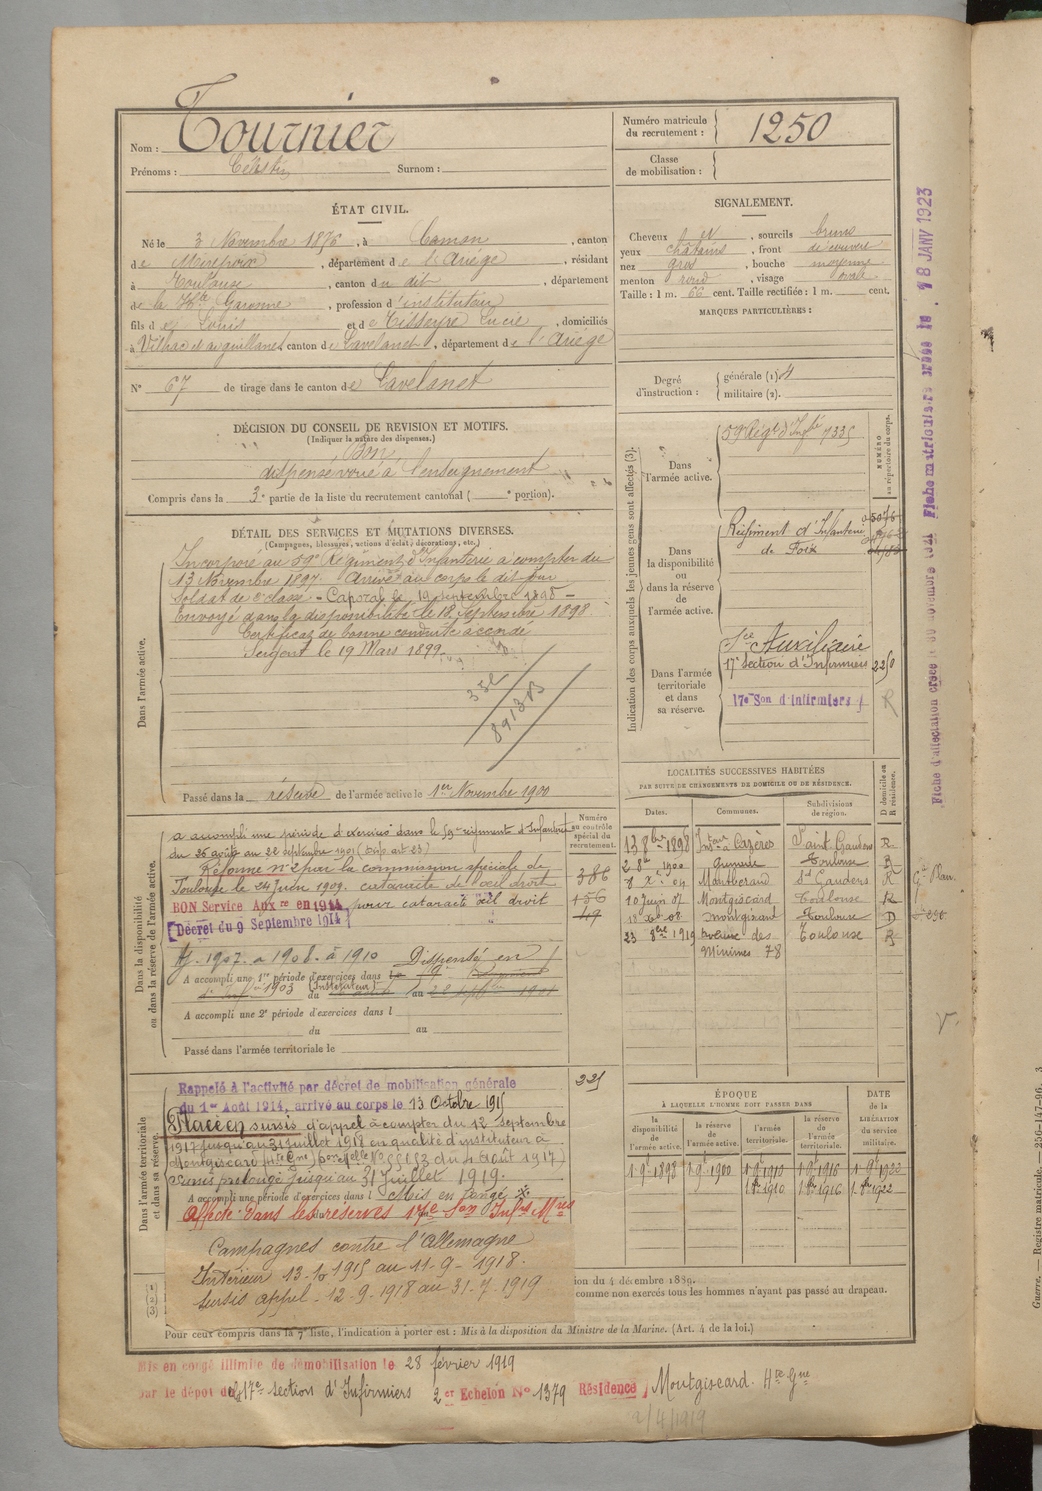 Nom : Tournier
Prénoms : Célestin Surnom :
Numéro matricule du recrutement : 1250
Classe de mobilisation :
ÉTAT CIVIL.
Né le 3 Novembre 1876, à Camon, canton
de Mirepoix, département de l'Ariège, résidant
à Toulouse, canton du dit, département
de la Hte Garonne, profession d'instituteur
fils de Louis et de Tisseyre Lucie, domiciliés
à Vilhac et aiguillanes canton de Lavelanet, département de l'Ariège
N° 67 de tirage dans le canton de Lavelanet
SIGNALEMENT.
Cheveux, sourcils bruns
yeux châtains, front découvert
nez gros, bouche moyenne
menton rond, visage ovale
Taille : 1 m. 66 cent. Taille rectifiée : 1 m. cent.
MARQUES PARTICULIÈRES :
Degré d'instruction : générale (1) 4
militaire (2).
DÉCISION DU CONSEIL DE REVISION ET MOTIFS.
(Indiquer la nature des dispenses.)
Bon
dispensé voué à l'enseignement
Compris dans la 3e partie de la liste du recrutement cantonal ( e portion).
DÉTAIL DES SERVICES ET MUTATIONS DIVERSES.
(Campagnes, blessures, actions d'éclat, décorations, etc.)
Dans l'armée active.
Incorporé au 59e Régiment d'Infanterie à compter du
13 Novembre 1897. Arrivé au corps le dit jour
Soldat de 2e classe - Caporal le 19 septembre 1898 -
Envoyé dans la disponibilité le 18 Septembre 1898
Certificat de bonne conduite accordé
Sergent le 19 Mars 1899
352
Passé dans la réserve de l'armée active le 1er Novembre 1900
Indication des corps auxquels les jeunes gens sont affectés (3).
NUMÉRO au répertoire du corps.
Dans l'armée active.
59e Régt d'Infie 7335
Dans la disponibilité ou dans la réserve de l'armée active.
Régiment d'Infanterie
de Foix
Dans l'armée territoriale et dans sa réserve.
Sce Auxiliaire
17e Section d'Infirmiers 2250
17e Son d'infirmiers R
LOCALITÉS SUCCESSIVES HABITÉES
PAR SUITE DE CHANGEMENTS DE DOMICILE OU DE RÉSIDENCE.
Dates. Communes. Subdivisions de région. D domicile ou R résidence.
13 8bre 1898 Instr à Cazères Saint Gaudens R
1900 Toulouse R
Montberaud St Gaudens R
10 juin 07 Montgiscard Toulouse R
Montgiscard Toulouse D
23 8bre 1919 avenue des Toulouse R
Minimes 78
Dans la disponibilité ou dans la réserve de l'armée active.
Numéro au contrôle spécial du recrutement.
a accompli une période d'exercices dans le 59e régiment d'Infanterie
du 26 août au 22 septembre 1901
Réformé n° 2 par la commission spéciale de
Toulouse le 24 Juin 1909. cataracte de l'œil droit
BON Service Auxre en 1914 pour cataracte œil droit
Décret du 9 Septembre 1914
386
156
Aj. 1907. a 1908. à 1910 Dispensé en
A accompli une 1re période d'exercices dans
1903 (Instituteur) du au
A accompli une 2e période d'exercices dans l
du au
Passé dans l'armée territoriale le
Dans l'armée territoriale et dans sa réserve.
Rappelé à l'activité par décret de mobilisation générale
du 1er Août 1914, arrivé au corps le 13 Octobre 1915
Placé en sursis d'appel à compter du 12 septembre
1917 jusqu'au 31 juillet 1918 en qualité d'instituteur à
Montgiscard (Hte Gne)
Sursis prolongé jusqu'au 31 juillet 1919.
A accompli une période d'exercices dans l
Affecté dans les réserves 17e Son Infrs Mres
Campagnes contre l'Allemagne
Intérieur 13-10 1915 au 11-9-1918.
Sursis appel - 12-9-1918 au 31-7-1919
ÉPOQUE
À LAQUELLE L'HOMME DOIT PASSER DANS
la disponibilité de l'armée active. la réserve de l'armée active. l'armée territoriale. la réserve de l'armée territoriale.
DATE de la LIBÉRATION du service militaire.
1 9e 1898 1 9e 1900 1 9e 1910 1 9e 1916 1 9e 1922
1 8e 1910 1 8e 1916 1 8e 1922
ion du 4 décembre 1889.
comme non exercés tous les hommes n'ayant pas passé au drapeau.
Pour ceux compris dans la 7e liste, l'indication à porter est : Mis à la disposition du Ministre de la Marine. (Art. 4 de la loi.)
Mis en congé illimité de démobilisation le 28 février 1919
par le dépôt de 17e section d'Infirmiers 2er Echelon N° 1379 Résidence Montgiscard. Hte Gne
2/4/1919
Fiche d'affectation créée le Fiche matriculaire créée le 18 JANV 1923
Guerre. — Registre matricule. — 256-147-96.